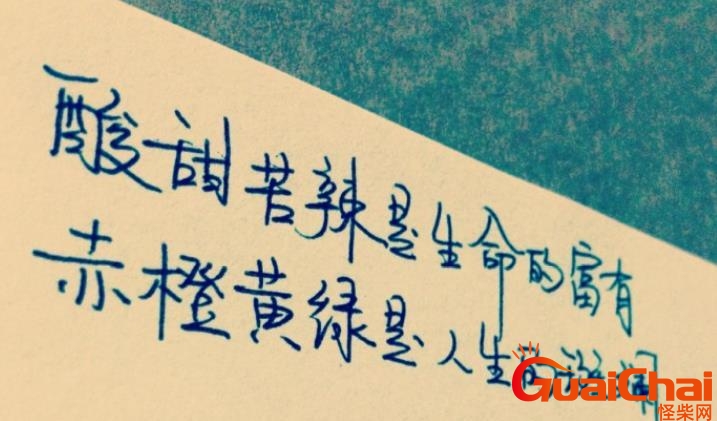 酸甜苦辣是生命的富有
赤橙黄绿是人生的斑斓
GuaiChai
怪柴网